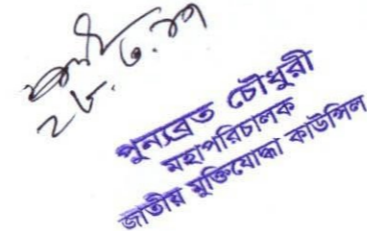 ২৮.৩.২১
পুন্যব্রত চৌধুরী
মহাপরিচালক
জাতীয় মুক্তিযোদ্ধা কাউন্সিল